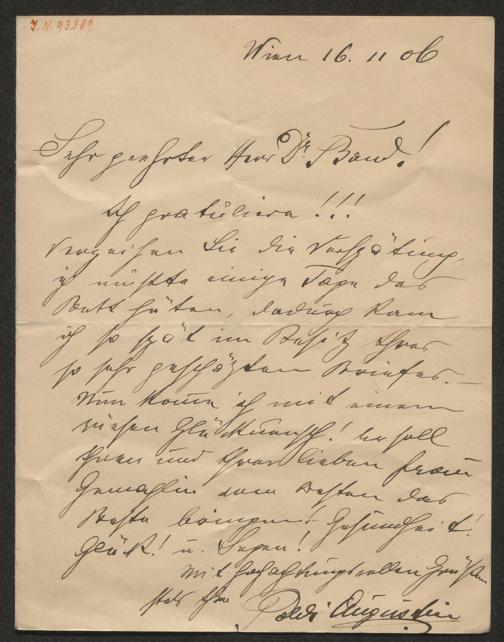 J.N. 93389
Wien 16. 11 06
Sehr geehrter Herr Dr Band!
Ich gratuliere!!!
Verzeihen Sie die Verspätung,
ich mußte einige Tage das
Bett hüten, dadurch kam
ich so spät im Besitz Ihres
so sehr geschäzten Briefes. —
Nun komme ich mit einem
riesen Glückwunsch! Er soll
Ihnen und Ihrer lieben Frau
Gemahlin vom Besten das
Beste bringen! Gesundheit!
Glück! u. Segen!
Mit hochachtungsvollen Grüßen
stets Ihr
Augustin